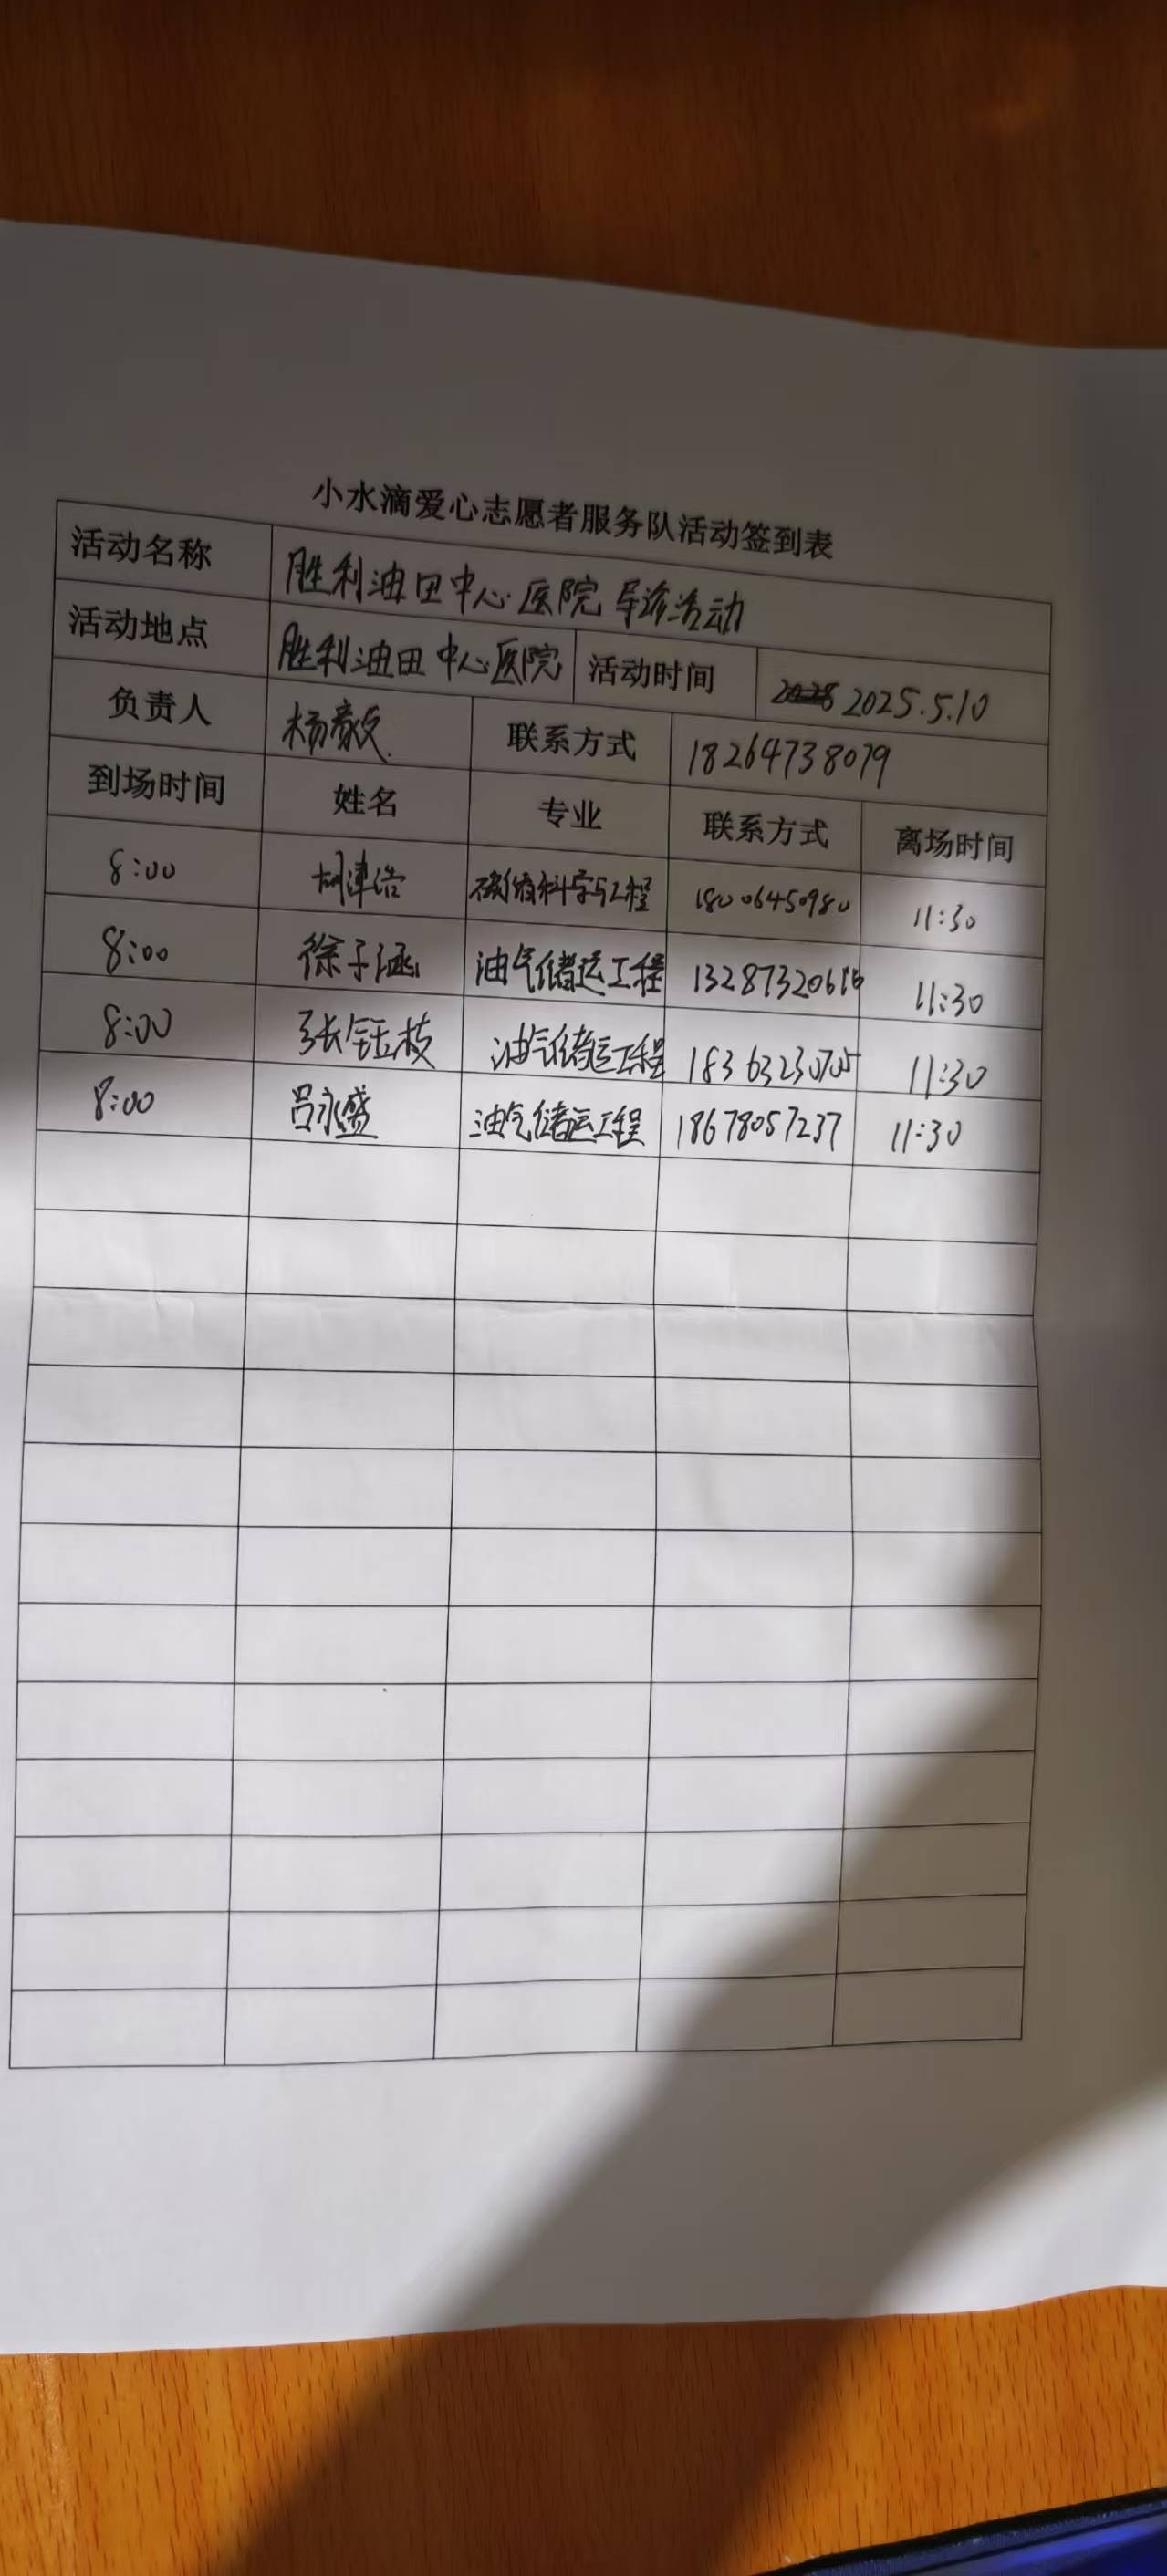 小水滴爱心志愿者服务队活动签到表
活动名称 胜利油田中心医院导诊活动
活动地点 胜利油田中心医院 活动时间 2025.5.10
负责人 杨毅 联系方式 18264738079
到场时间 姓名 专业 联系方式 离场时间
8:00 胡津浩 碳储科学与工程 18006450980 11:30
8:00 徐子涵 油气储运工程 11:30
8:00 张钰枝 油气储运工程 18363230705 11:30
8:00 吕永盛 油气储运工程 18678057237 11:30